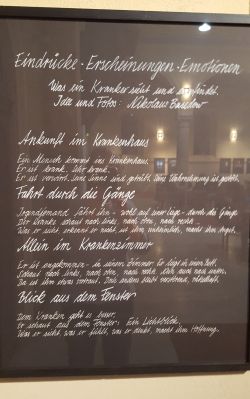 Eindrücke · Erscheinungen · Emotionen
Was ein Kranker sieht und empfindet.
Idee und Fotos: Nikolaus
Ankunft im Krankenhaus
Ein Mensch kommt ins Krankenhaus.
Er ist krank. Sehr krank.
Er ist verwirrt, seine Sinne sind getrübt, seine Wahrnehmung ist gestört.
Fahrt durch die Gänge
Irgendjemand fährt ihn - wohl auf einer Liege - durch die Gänge
Der Kranke schaut nach links, nach oben, nach rechts.
Was er sieht, erkennt er nicht, ist ihm unheimlich, macht ihm Angst.
Allein im Krankenzimmer
Er ist angekommen - in seinem Zimmer. Er liegt in einem Bett.
Schaut nach links, nach oben, nach rechts, auch nach unten.
Da ist ihm etwas vertraut. Das andere bleibt verstörend, rätselhaft.
Blick aus dem Fenster
Dem Kranken geht es besser.
Er schaut aus dem Fenster: Ein Lichtblick.
Was er sieht, was er fühlt, was er denkt, macht ihm Hoffnung.